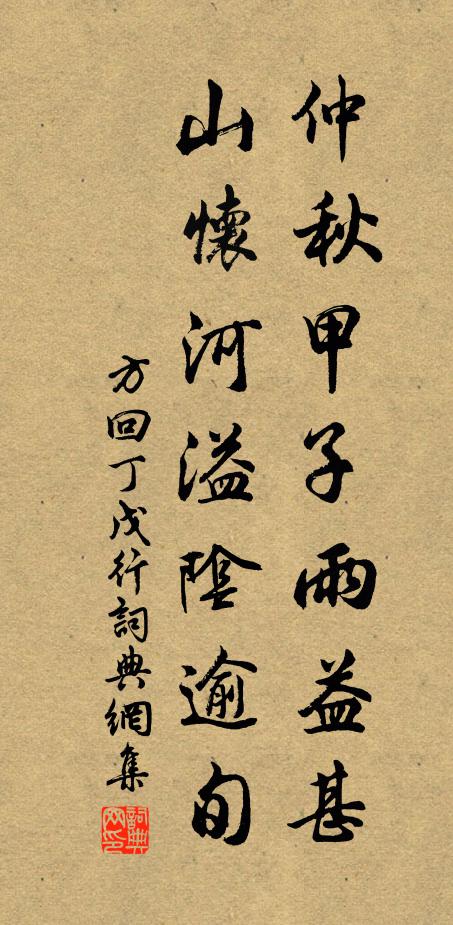 仲秋甲子雨益甚
山懷河溢陰逾旬
方回丁戊行詞典網集
詞典网印